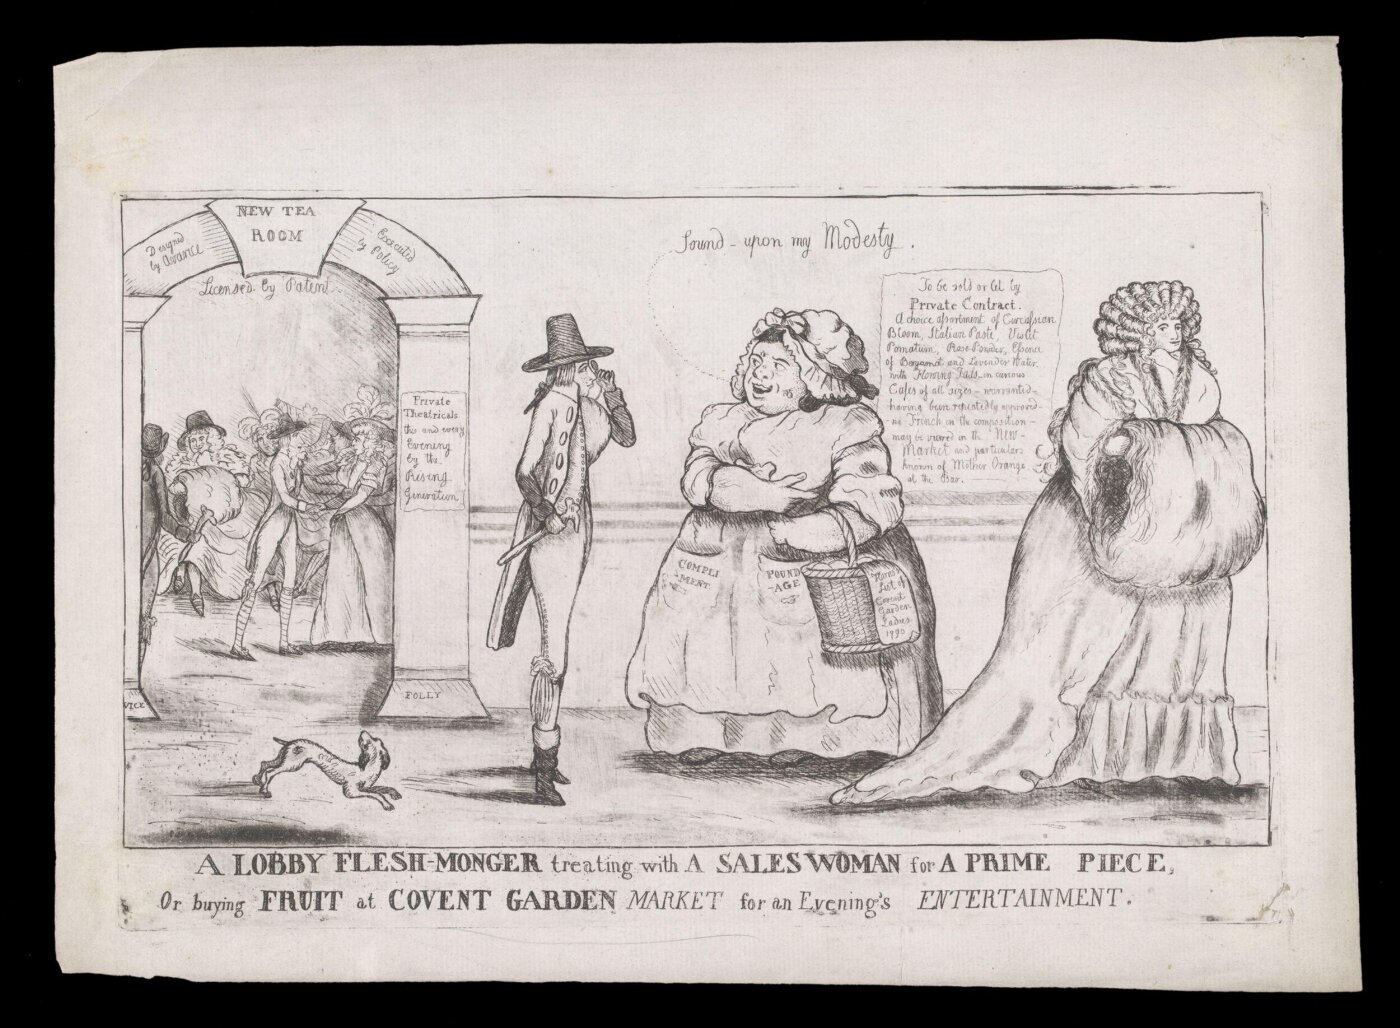 NEW TEA
ROOM
Designed
by Avarice
Executed
by Policy
Licensed by Patent.
Private
Theatricals
this and every
Evening
by the
Rising
Generation
VICE
FOLLY
Sound - upon my Modesty.
To be sold or let by
Private Contract.
A choice assortment of Circassian
Bloom, Italian Paste, Violet
Pomatum, Rose Powder, Essence
of Bergamot and Lavender Water
with Flowing Tails in curious
Cases of all sizes - warranted -
having been repeatedly approved
no French in the composition -
may be viewed in the NEW -
Market and particulars
known of Mother Orange
at the Bar.
COMPLI
-MENT
POUND
-AGE
List of
Covent
Garden
Ladies
1790
A LOBBY FLESH-MONGER treating with A SALESWOMAN for A PRIME PIECE,
Or buying FRUIT at COVENT GARDEN MARKET for an Evening's ENTERTAINMENT.